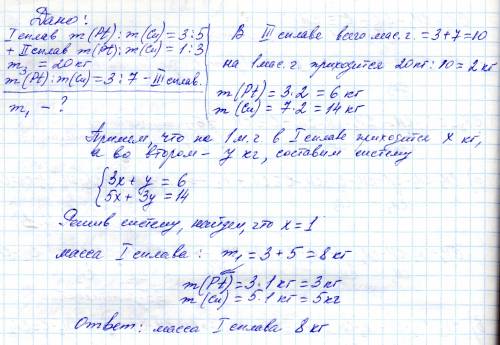 Дано:
I сплав m(Pt):m(Cu)=3:5
+ II сплав m(Pt):m(Cu)=1:3
m3 = 20 кг
m(Pt):m(Cu)=3:7 – III сплав.
m1 – ?
В III сплаве всего мас.г. =3+7=10
на 1мас.г. приходится 20кг:10=2кг
m(Pt)=3·2=6 кг
m(Cu)=7·2=14кг
Примем, что на 1м.г. в I сплаве приходится x кг,
а во втором – y кг, составим систему
3x + y = 6
5x + 3y = 14
Решив систему, найдем, что x=1
масса I сплава: m1 = 3+5=8кг
m(Pt)=3·1кг=3кг
m(Cu)=5·1кг=5кг
Ответ: масса I сплава 8 кг